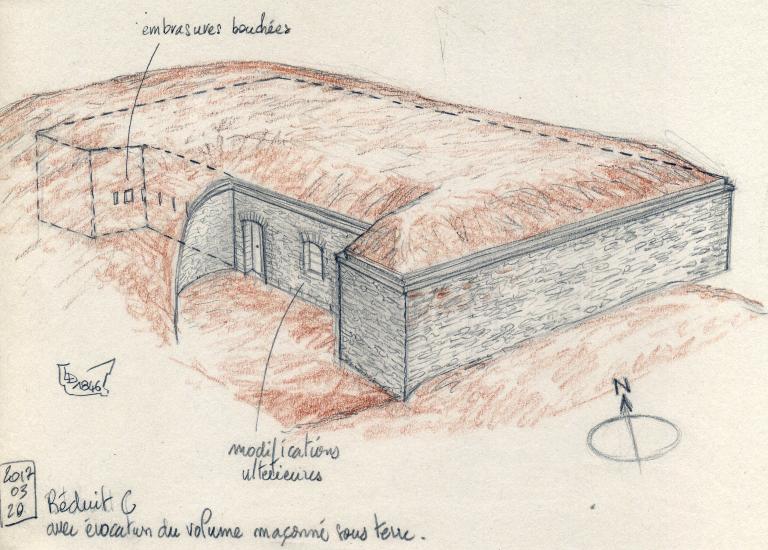 embrasures bouchées
N
LD 1846
modifications
ulterieures
2017
03
20
Réduit C
avec évocation du volume maçonné sous terre.